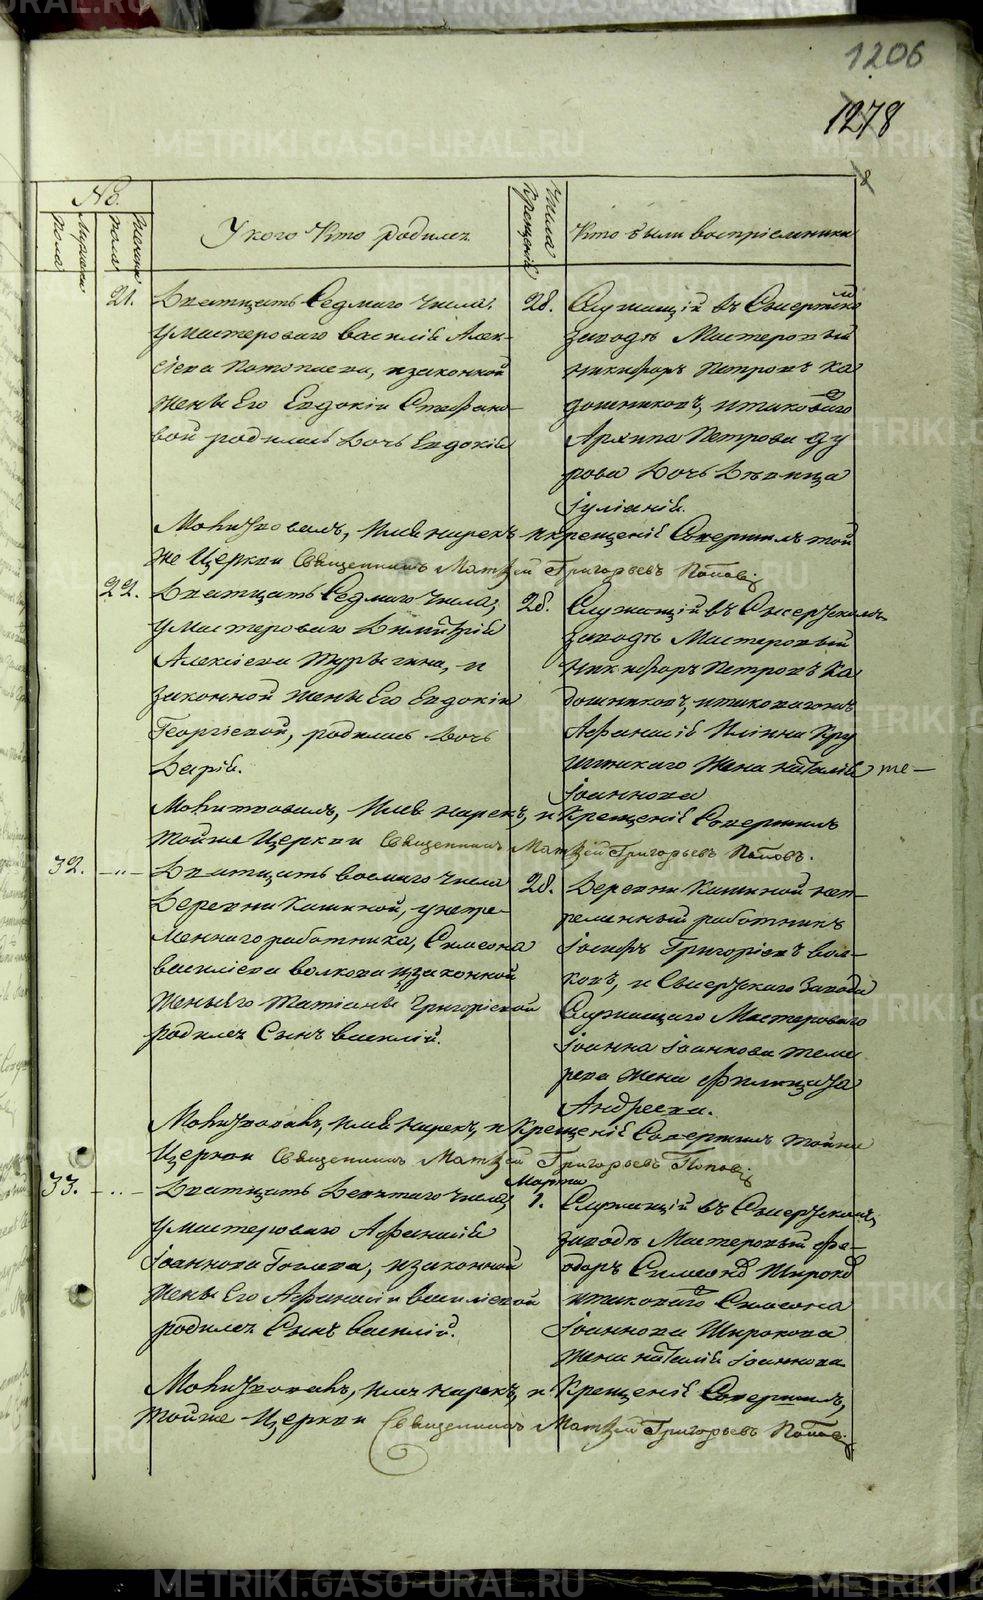 1206
1278
№
Мужеска пола
Женска пола
У кого кто родился
Числа крещенія
Кто были воспріемники
21.
Дватцать Седмаго числа,
У мастероваго Василія Алек-
сіева Потопаева, изаконной
жены Его Евдокіи Стефано-
вой родилась дочь Евдокія
28.
Служащій въ Сысертском
заводѣ Мастеровый
Никифоръ Петровъ Ка
дошниковъ, итаковаго
Архипа Петрова
рова дочь Дѣвица
Іуліанія.
Молитвовалъ, имя нарекъ и крещеніе Совершилъ той
же Церкви Священникъ Матѳей Григорьевъ Поповъ
22.
Дватцать Седмаго числа,
У Мастероваго Димитрія
Алексіева Турыгина, и
законной жены Его Евдокіи
Георгіевой, родилась дочь
Дарія.
28.
Служащій въ Сысертскомъ
заводѣ Мастеровый
Никифоръ Петровъ Ка
дошниковъ, итаковагожъ
Афанасія Иліина
жена Наталія
Іоаннова
Молитвовалъ, Имя нарекъ, и Крещеніе Совершилъ
тойже Церкви Священникъ Матѳей Григорьевъ Поповъ.
32.
Дватцать восмаго числа
Деревни Кашиной, унепре-
меннаго работника, Симеона
василіева волкова изаконной
жены Его Татіаны Григоріевой
родился Сынъ василій.
28.
Деревни Кашиной неп-
ременный работникъ
Іосифъ Григоріевъ вол-
ковъ, и Сысертскаго завода
Служащаго Мастероваго
Іоанна Іоаннова
жена Филицата
Андреева.
Молитвовалъ, имя нарекъ, и Крещеніе Совершилъ тойже
Церкви Священникъ Матѳей Григорьевъ Поповъ
33.
Дватцать Девятаго числа,
У мастероваго Афанасія
Іоаннова Голева, изаконной
жены Его Афанасіи василіевой
родился Сынъ василій.
Марта
1.
Служащій въ Сысертскомъ
заводѣ Мастеровый Фе-
одоръ Симеоновъ Широковъ
итаковаго Симеона
Іоаннова Широкова
жена Наталія Іоаннова
Молитвовалъ, имя нарекъ, и Крещеніе Совершилъ,
тойже Церкви Священникъ Матѳей Григорьевъ Поповъ
METRIKI.GASO-URAL.RU